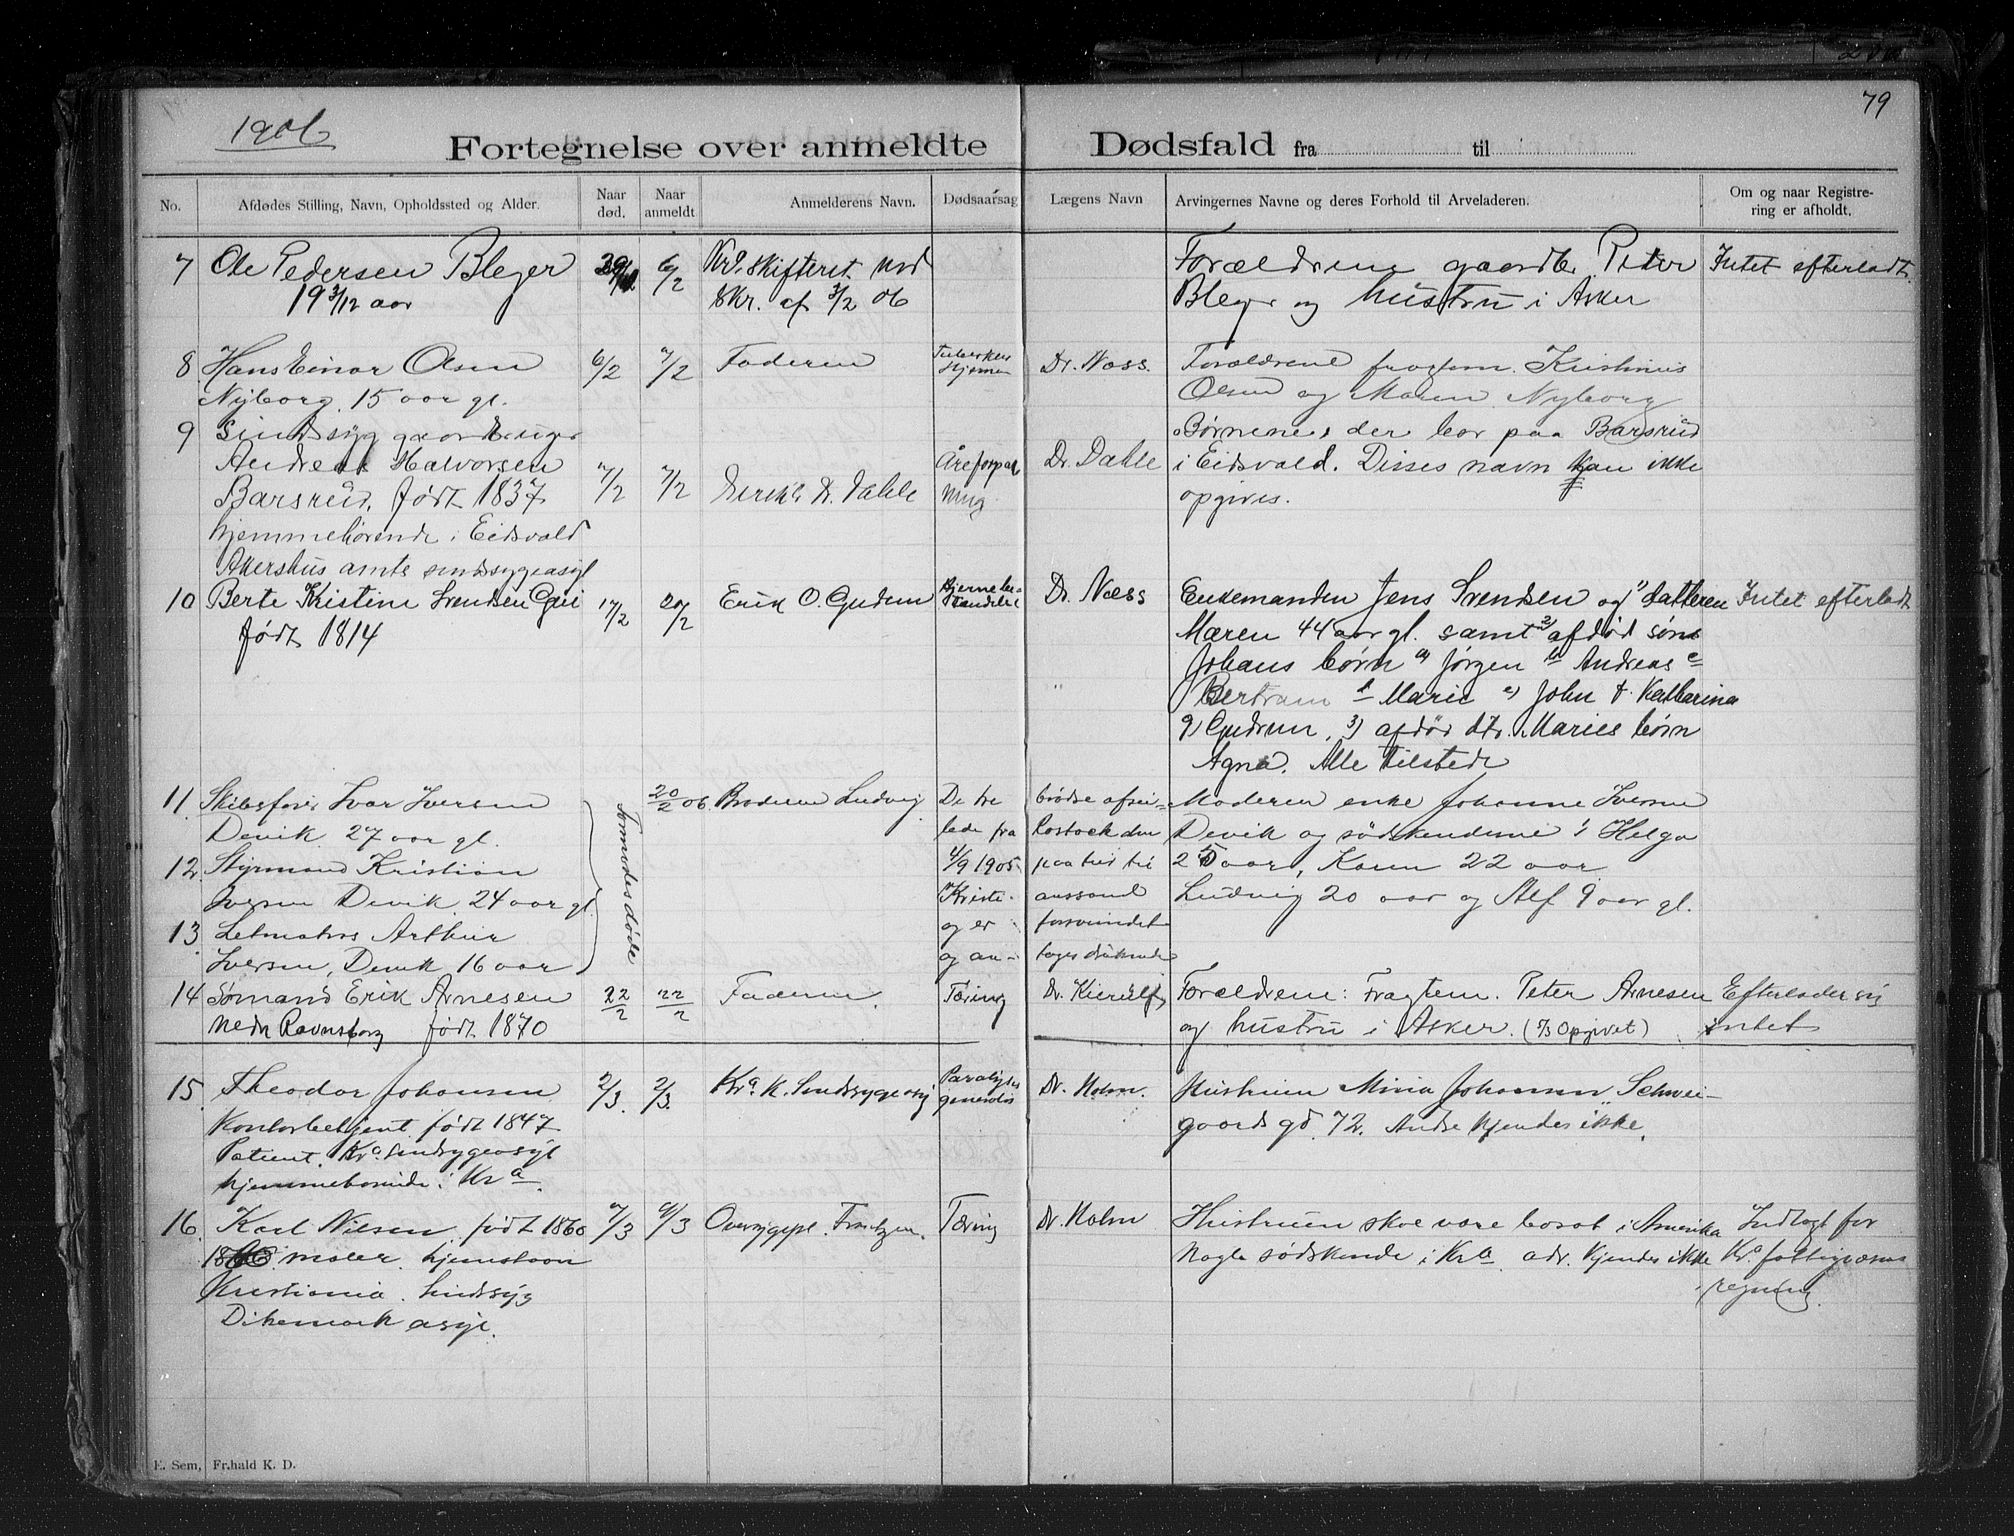 1906
79
Fortegnelse over anmeldte Dødsfald fra til
No. Afdødes Stilling, Navn, Opholdssted og Alder. Naar død. Naar anmeldt Anmelderens Navn. Dødsaarsag Lægens Navn Arvingernes Navne og deres Forhold til Arveladeren. Om og naar Registrering er afholdt.
7 Ole Pedersen Bleger 6/2 Krd. skifteret ved Forældrene gaardbr Peter Intet efterladt.
19 3/12 aar Skr. af 3/2 06 Bleger og hustru i Asker
8 Hans Einar Olsen 6/2 7/2 Faderen Tuberkler Hjernen Dr. Næss. Forældrene fragtem. Kristinius
Nyborg. 15 aar gl. Olsen og Maren Nyborg
9 Sindssyg gaardbruger Børnene, der bor paa Barsrud
Andreas Halvorsen 7/2 7/2 Dr. Dahle Åreforpakning Dr. Dahle i Eidsvald. Disses navn kan ikke
Barsrud, født 1837 opgives.
hjemmehørende i Eidsvald
Akershus amts sindssygeasyl
10 Berte Kristine Svendsen Gui 17/2 20/2 Erik O. Gudem Dr. Næss Enkemanden Jens Svendsen og 1) datteren Intet efterladt
født 1814 Maren 44 aar gl. samt 2) afdød søns
Johans børn a) Jørgen b Andreas c
Bertram d Marie e) John f. Katharina
g) Gudrun, 3) afdør dtr. Maries børn
Agna. Alle tilstede
11. Skibsfører Ivar Iversen 20/2 06. Broderen Ludvig De tre brødre afsei- Moderen enke Johanne Iversen
Devik 27 aar gl. lede fra Rostock den Devik og sødskenderne: Helga
12. Styrmand Kristian 4/9 1905 paa tur til 25 aar, Karen 22 aar
Iversen Devik 24 aar gl. Kristi- anssand Ludvig 20 aar og Alf 9 aar gl.
13. Letmatros Arthur og er forsvundet
Iversen, Devik 16 aar og an- tages druknede
Formodes døde
14 Sømand Erik Arnesen 22/2 22/2 Faderen. Tæring Dr. Kierulf Forældrene: Fragtem. Peter Arnesen Efterlader sig
nedr Ravnsborg født 1870 og hustru i Asker. (7/3 Opgivet) intet
15. Theodor Johansen 2/3. 2/3. Kra. K. Sindssygeasyl Paralysis generalis Dr. Holm. Hustruen Minia Johansen, Schwei-
Kontorbetjent født 1847 gaards gd. 72. Andre kjendes ikke.
Patient. Kra Sindssygeasyl
hjemmeboende i Kra.
16. Karl Nilsen, født 1860 7/3 9/3 Oversygepl. Frantzen. Tæring Dr. Holm Hustruen skal være bosat i Amerika Indlagt for
maler. hjemstavn Nogle sødskende i Kra adr. kjendes ikke Kra fattigvæsens
Kristiania. Sindssyg regning.
Dikemark asyl.
E. Sem, Fr.hald K. D.